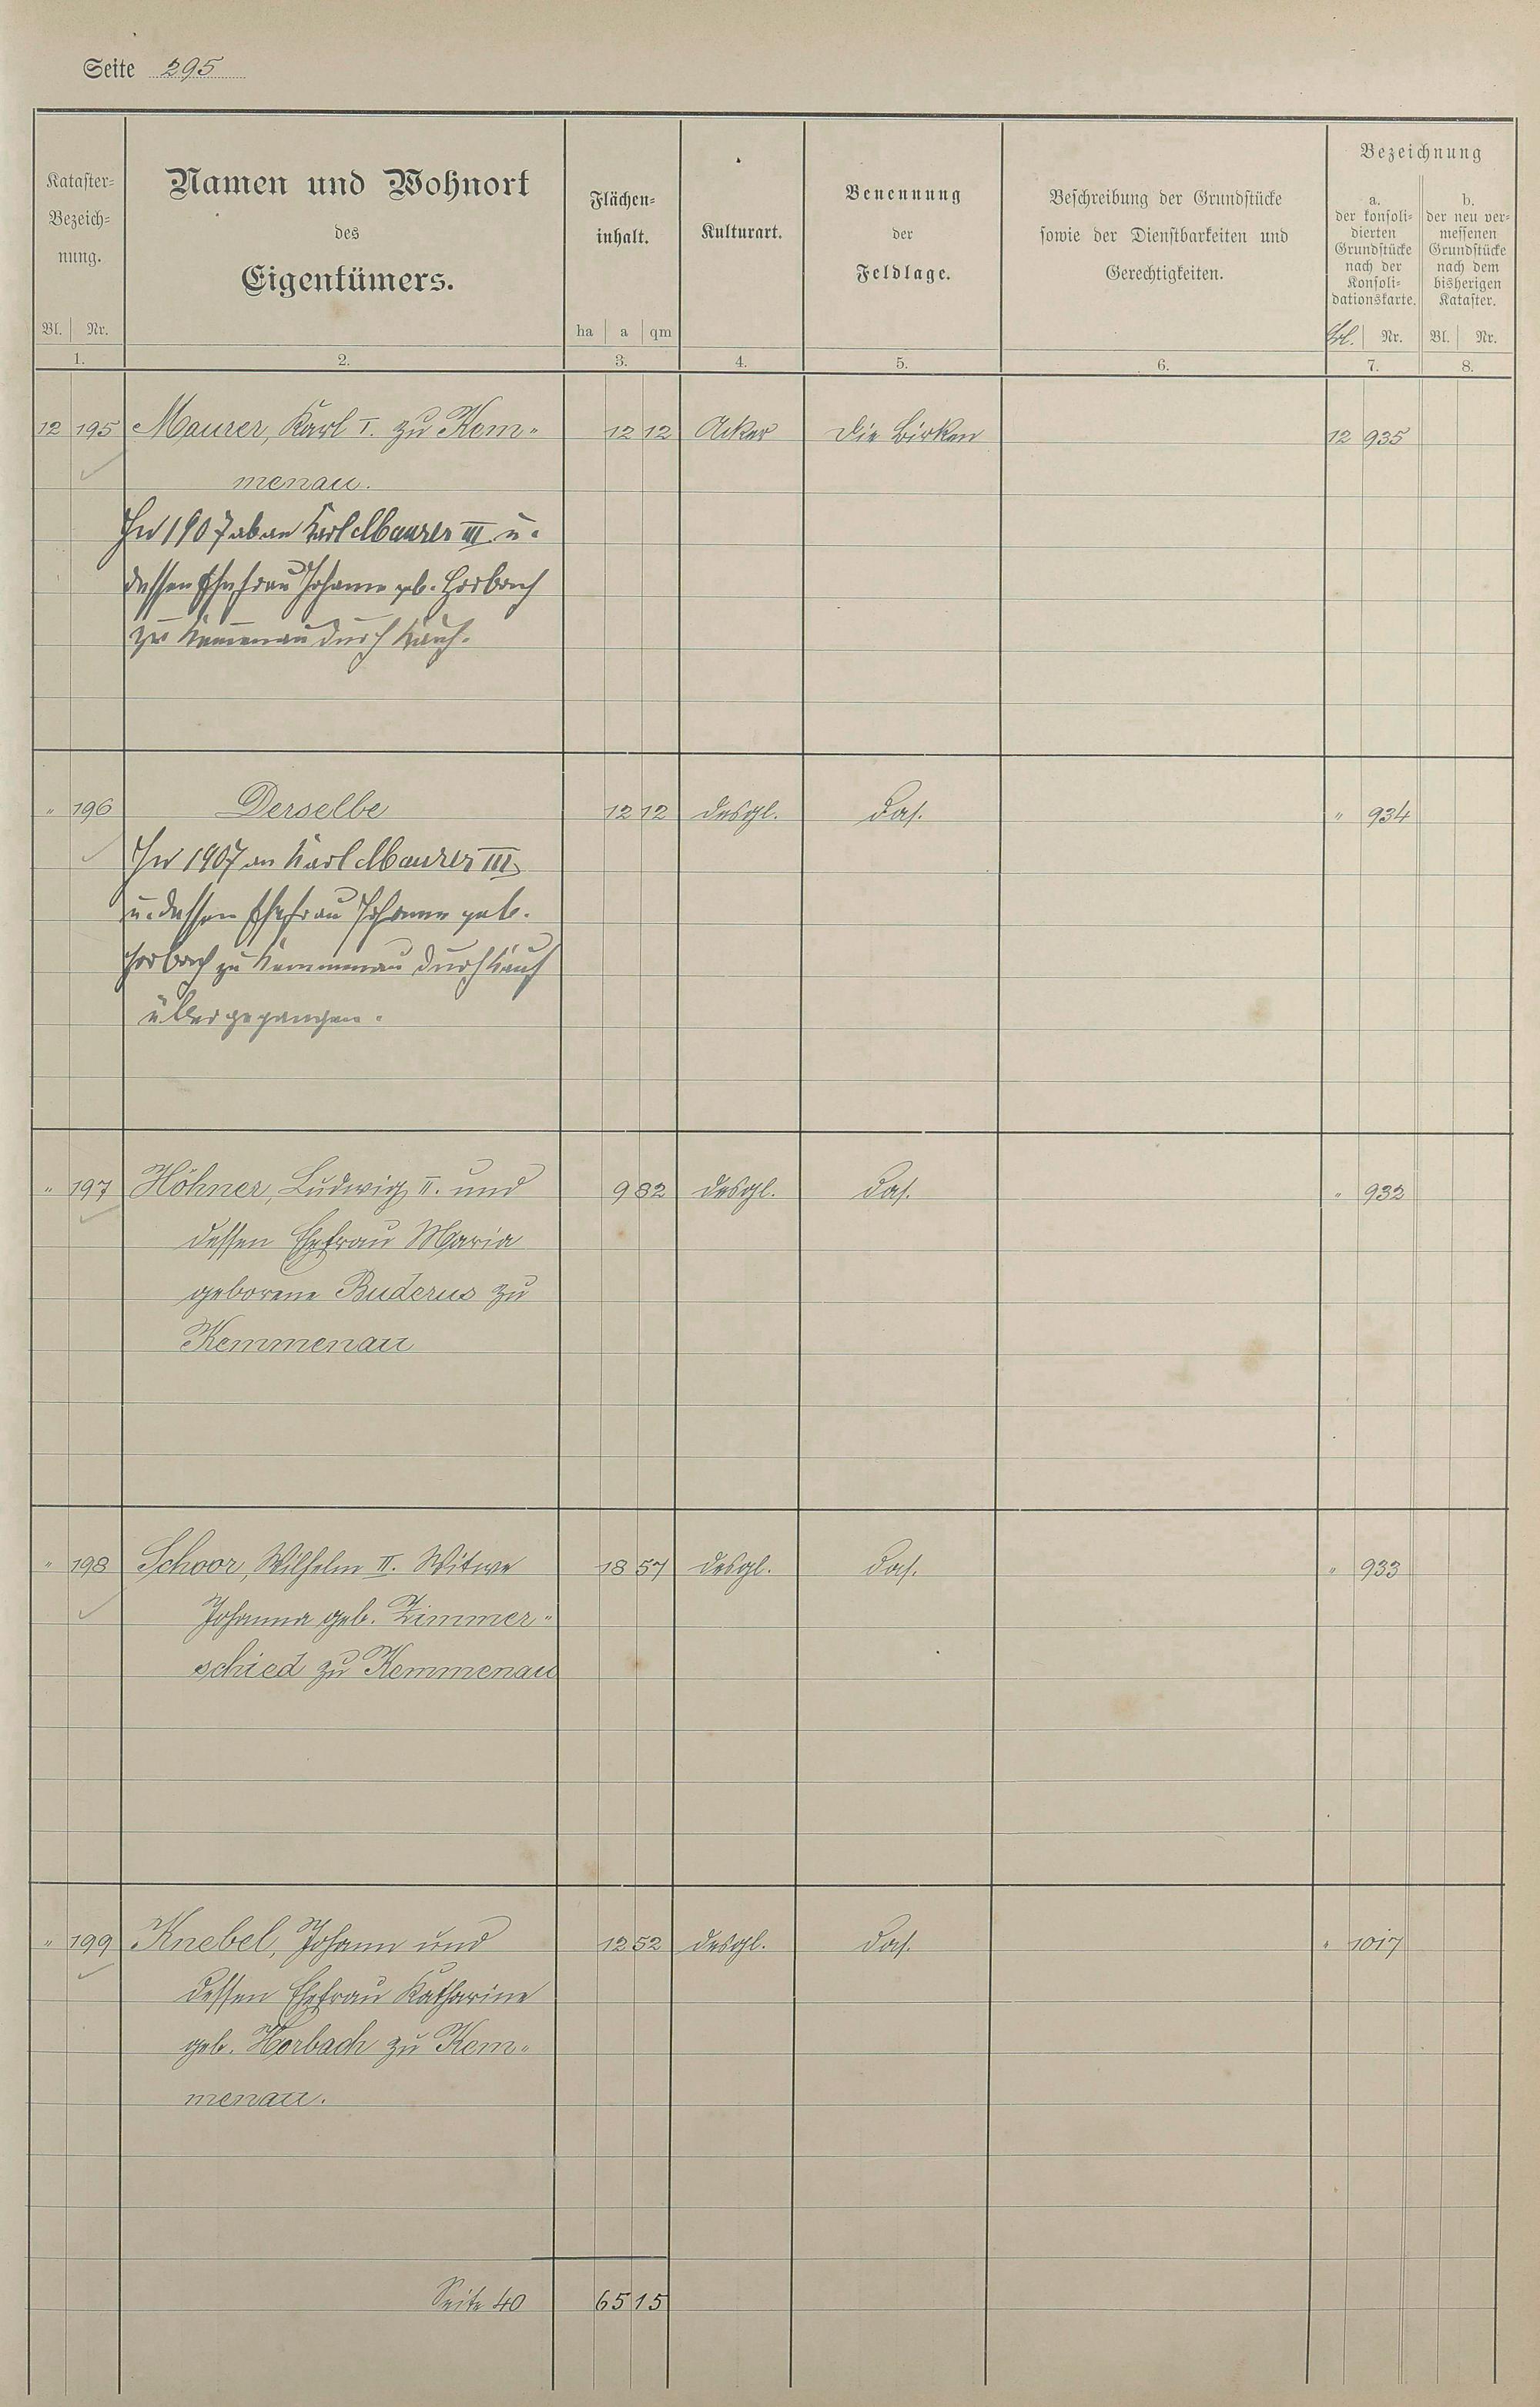 Seite 295
Kataster-
Bezeich-
nung.
Bl. Nr.
1.
Namen und Wohnort
des
Eigentümers.
2.
Flächen-
inhalt.
ha a qm
3.
Kulturart.
4.
Benennung
der
Feldlage.
5.
Beschreibung der Grundstücke
sowie der Dienstbarkeiten und
Gerechtigkeiten.
6.
Bezeichnung
a.
der konsoli-
dierten
Grundstücke
nach der
Konsoli-
dationskarte.
Nr.
7.
b.
der neu ver-
messenen
Grundstücke
nach dem
bisherigen
Kataster.
Bl. Nr.
8.
12 195 Maurer, Karl I. zu Kem- 12 12 Acker Die Birken 12 935
menau.
In 1907 ab an Karl Maurer III u.
dessen Ehefrau Johanna geb. Horbach
zu Kemmenau durch Kauf.
" 196 Derselbe 12 12 desgl. das. " 934
In 1907 an Karl Maurer III
u. dessen Ehefrau Johanna geb.
Horbach zu Kemmenau durch Kauf
übergegangen.
" 197 Höhner, Ludwig II. und 9 82 desgl. das. " 932
dessen Ehefrau Maria
geborene Buderus zu
Kemmenau
" 198 Schoor, Wilhelm II. Witwe 18 57 desgl. das. " 933
Johanna geb. Zimmer-
schied zu Kemmenau
" 199 Knebel, Johann und 12 52 desgl. das. " 1017
dessen Ehefrau Katharine
geb. Horbach zu Kem-
menau.
Seite 40 65 15